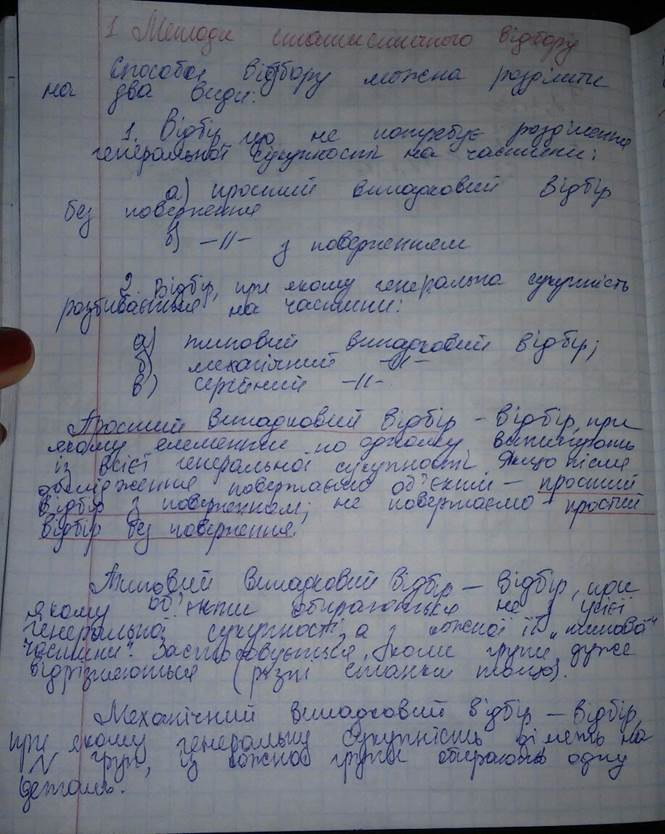 1 Методи статистичного відбору
Способи відбору можна розділити
на два види:
1. Відбір що не потребує розділення
генеральної сукупності на частини:
а) простий випадковий відбір
без повернення
б) –//– з поверненням
2. Відбір, при якому генеральна сукупність
розбивається на частини:
а) типовий випадковий відбір;
б) механічний –//–
в) серійний –//–
Простий випадковий відбір – відбір, при
якому елементи по одному витягують
із всієї генеральної сукупності. Якщо після
обстеження повертаємо об'єкт – простий
відбір з поверненням; не повертаємо – простий
відбір без повернення.
Типовий випадковий відбір – відбір, при
якому об'єкти обираються не з усієї
генеральної сукупності, а з кожної її „типової"
частини". Застосовується, коли групи дуже
відрізняються (різні станки тощо).
Механічний випадковий відбір – відбір,
при якому генеральну сукупність ділять на
N груп, із кожної групи обирають одну
деталь.